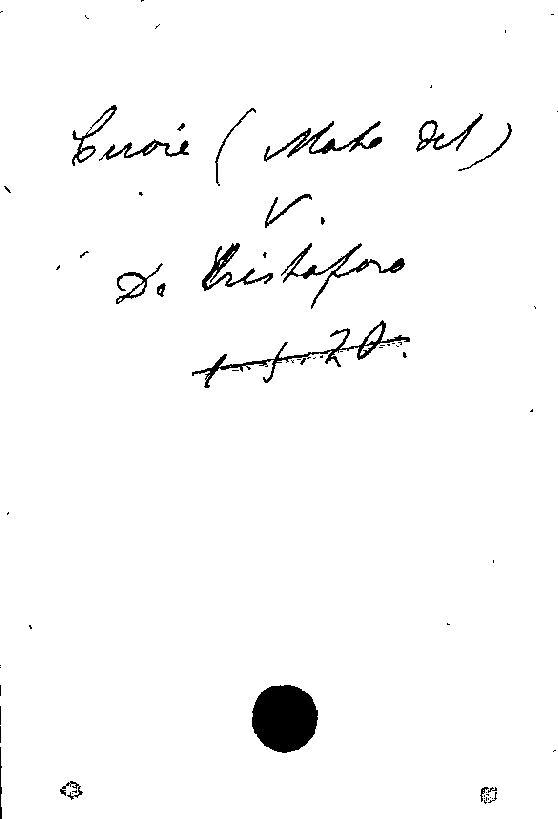 Cervie (Maho del)
V.
De Cristoforo
1.5.20.